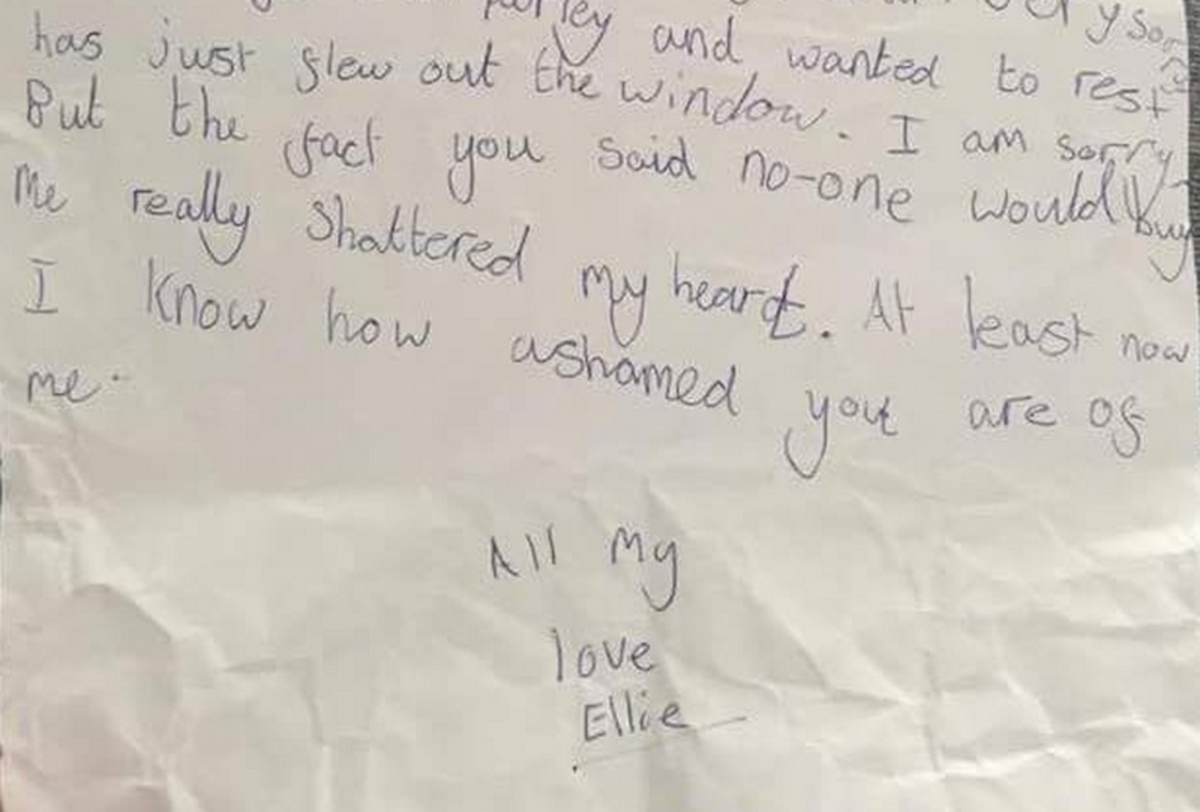 and wanted to rest
has just flew out the window. I am sorry
But the fact you said no-one would buy
me really shattered my heart. At least now
I know how ashamed you are of
me.
All my
love
Ellie